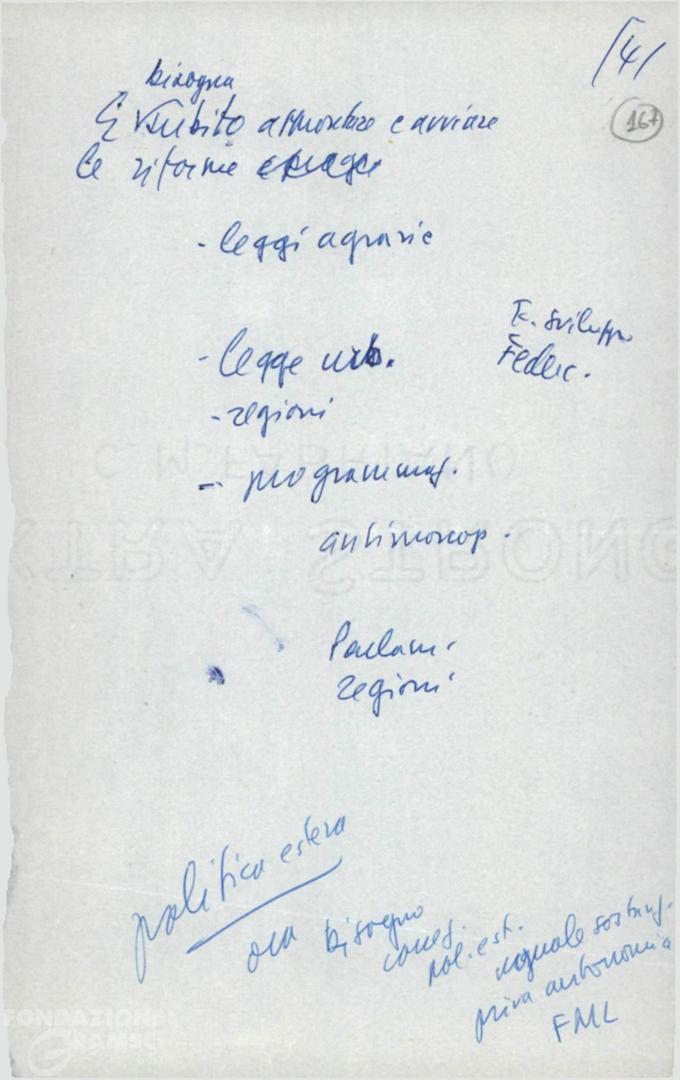 /4/
167
bisogna
E subito affrontare e avviare
le riforme
- leggi agrarie
E. sviluppo
Feder.
- legge urb.
- regioni
- programmaz.
antimonop.
Parlam.
regioni
politica estera
ora bisogno
pol. est.
uguale sostanz.
priva autonomia
FML
C. M. FABRIANO
EXTRA STRONG
FONDAZIONE
GRAMSCI